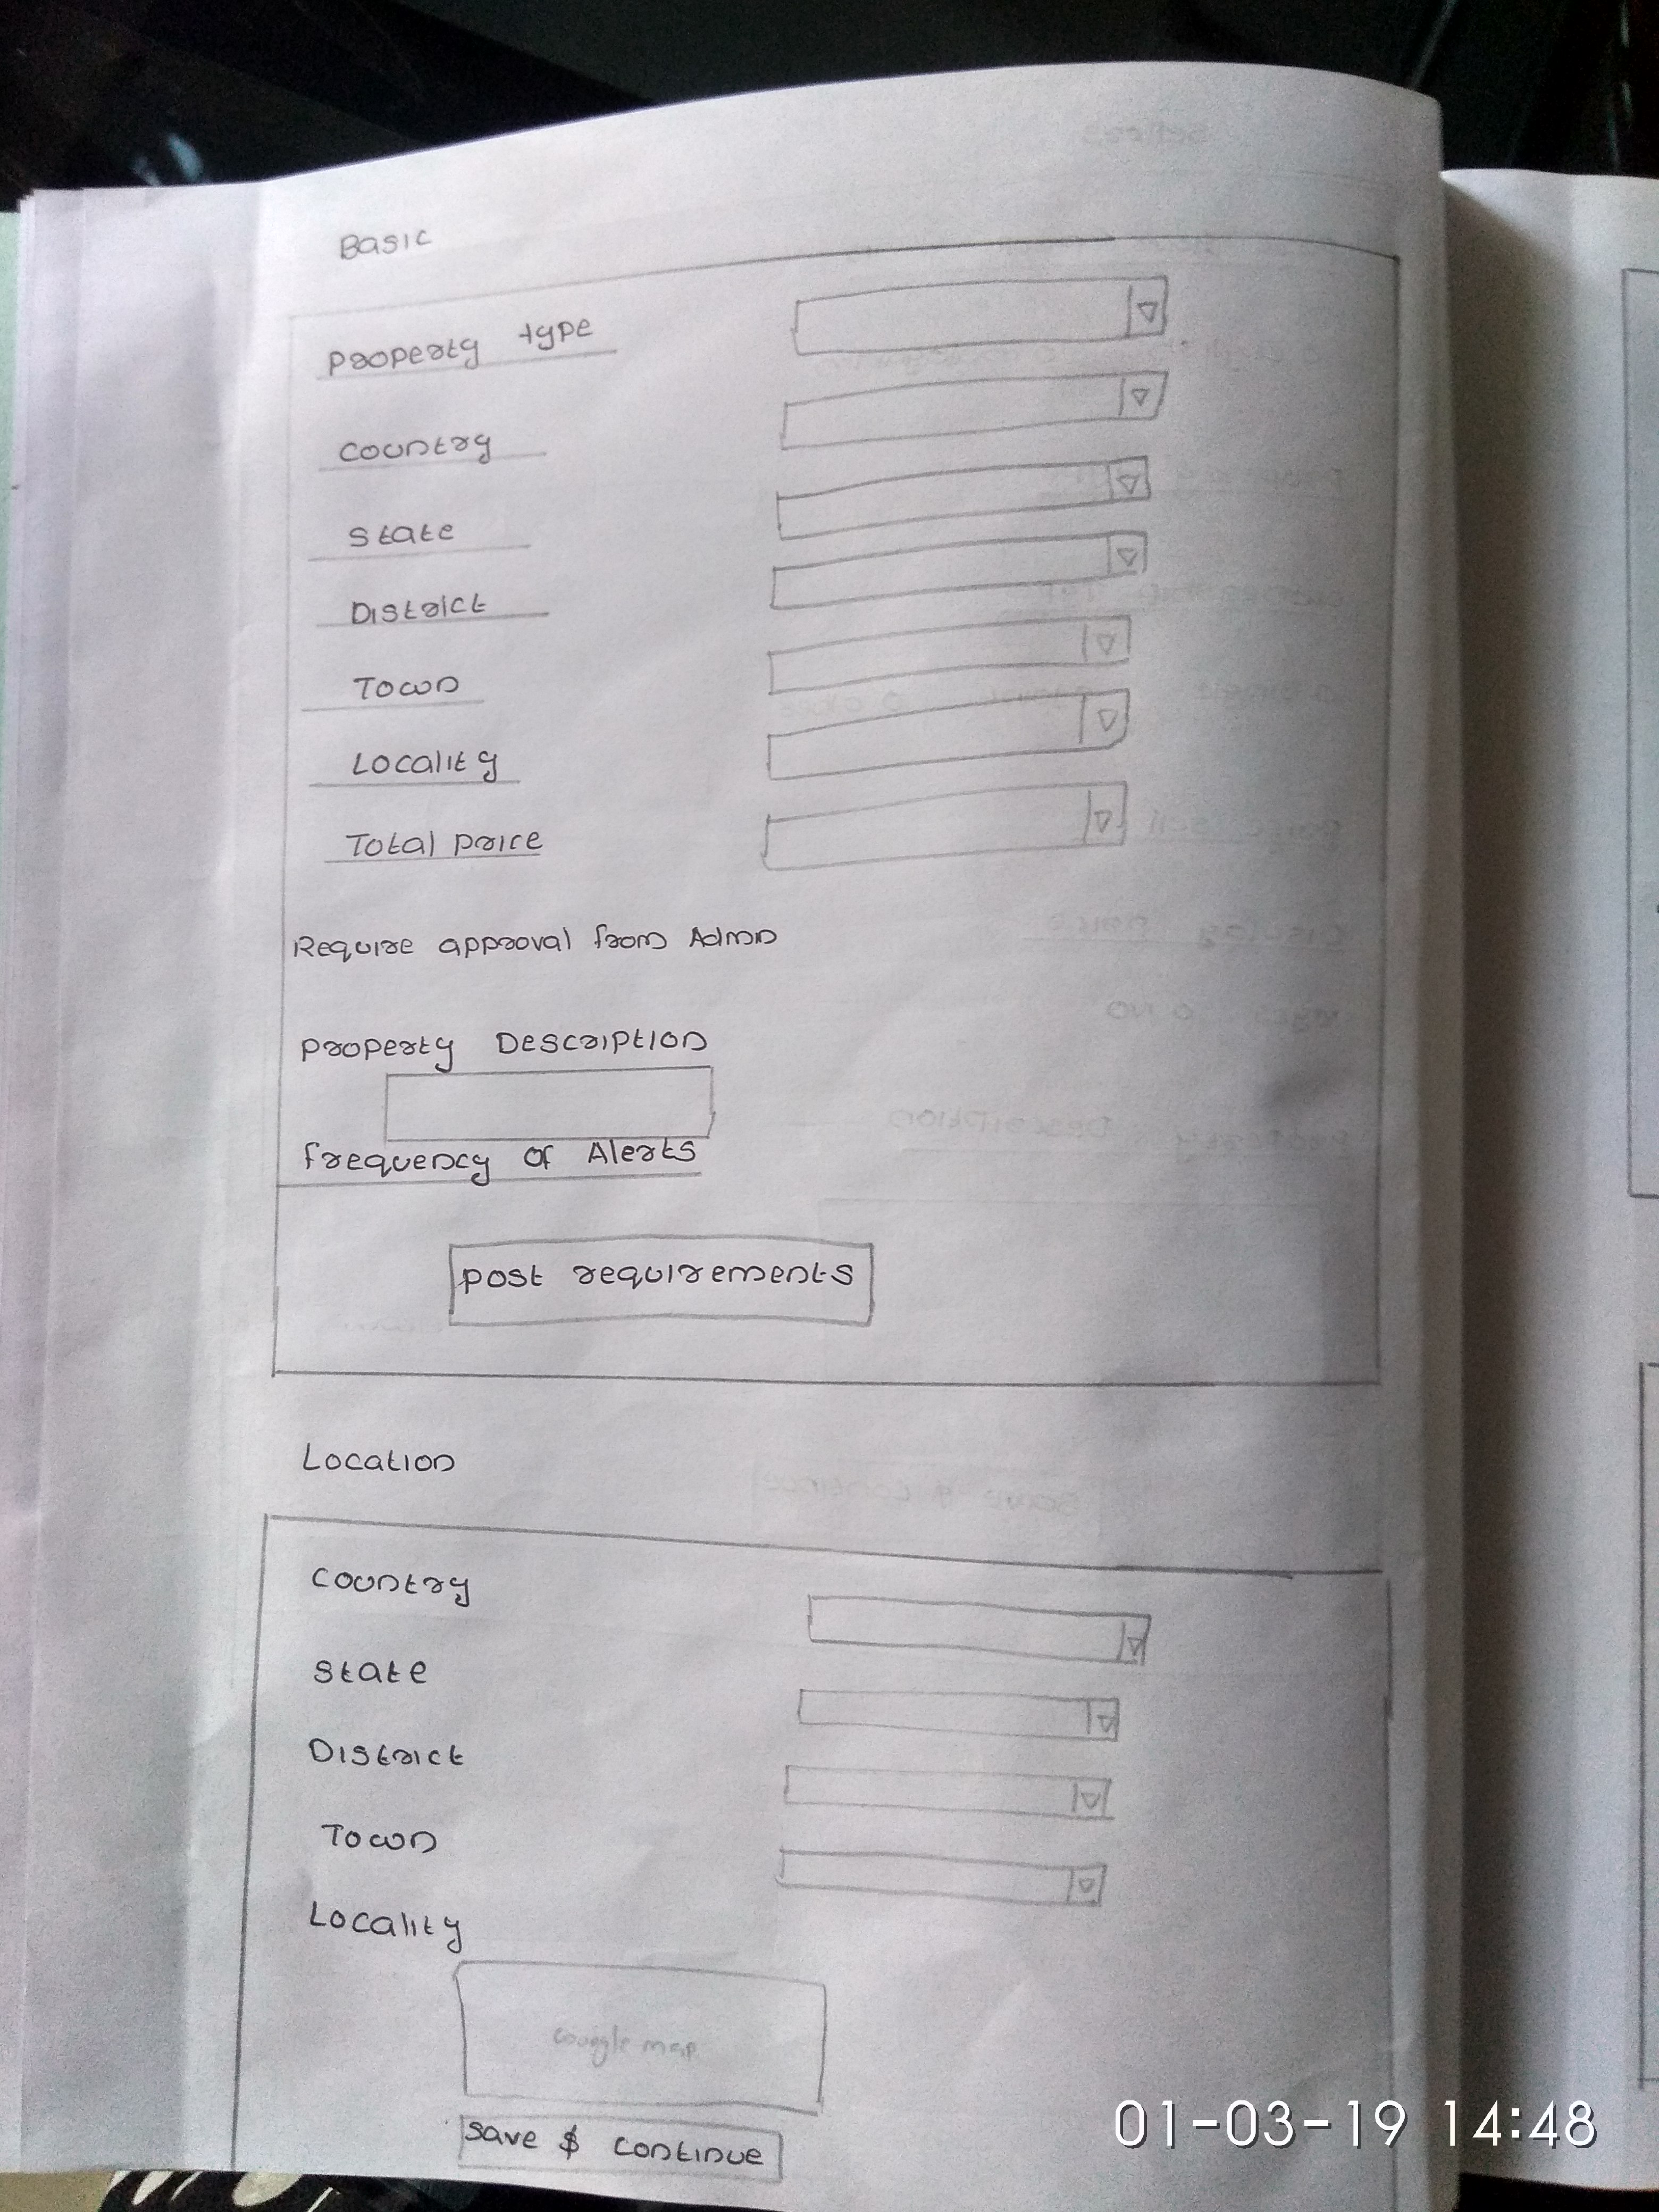 Basic
Property type
Country
State
District
Town
Locality
Total price
Require approval from Admin
Property Description
frequency of Alerts
post requirements
Location
Country
State
District
Town
Locality
Google map
save $ continue
01-03-19 14:48